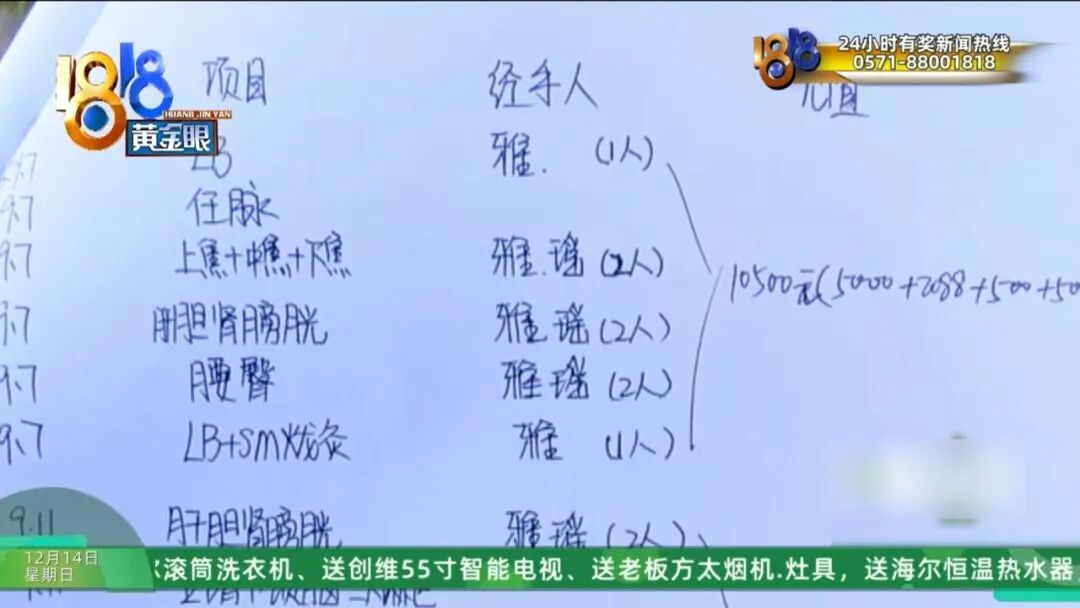 1818
HUANG JIN YAN
黄金眼
24小时有奖新闻热线
0571-88001818
项目 经手人
9.7 LB 雅. (1人)
9.7 任脉
9.7 上焦+中焦+下焦 雅.瑶 (2人)
9.7 肝胆肾膀胱 雅.瑶 (2人)
9.7 腰臀 雅.瑶 (2人)
9.7 LB+SM灸 雅 (1人)
10500元(5000+2088+500+50
9.11 肝胆肾膀胱 雅瑶 (2人)
12月14日
星期日
滚筒洗衣机、送创维55寸智能电视、送老板方太烟机.灶具，送海尔恒温热水器